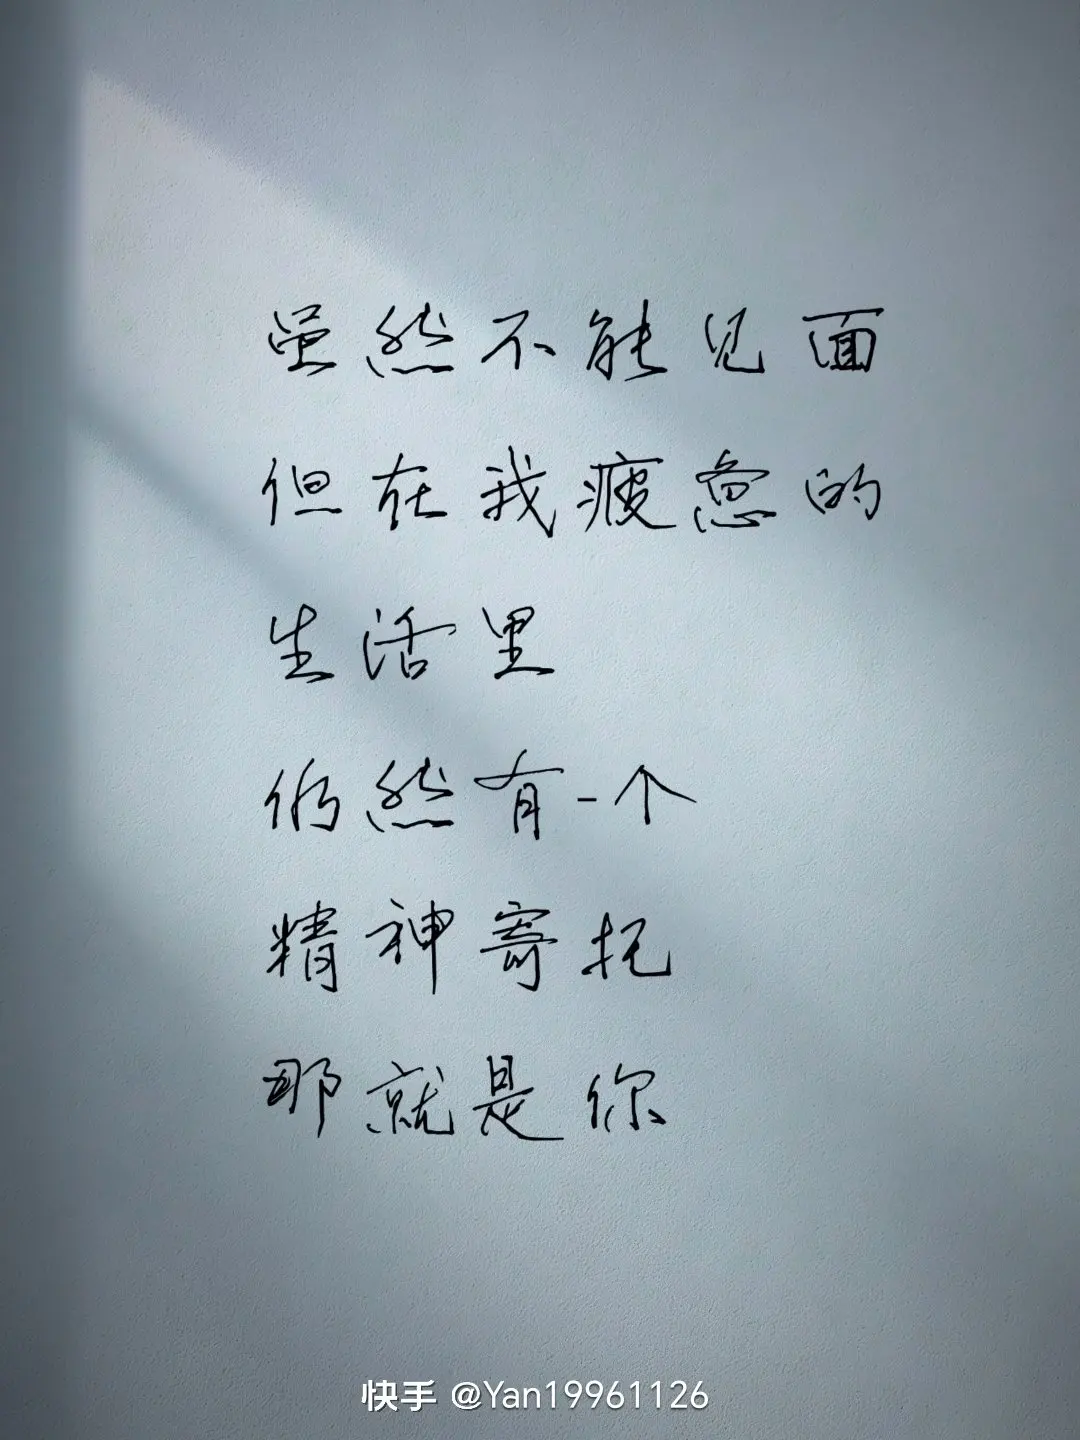 虽然不能见面
但在我疲惫的
生活里
仍然有一个
精神寄托
那就是你
快手 @Yan19961126